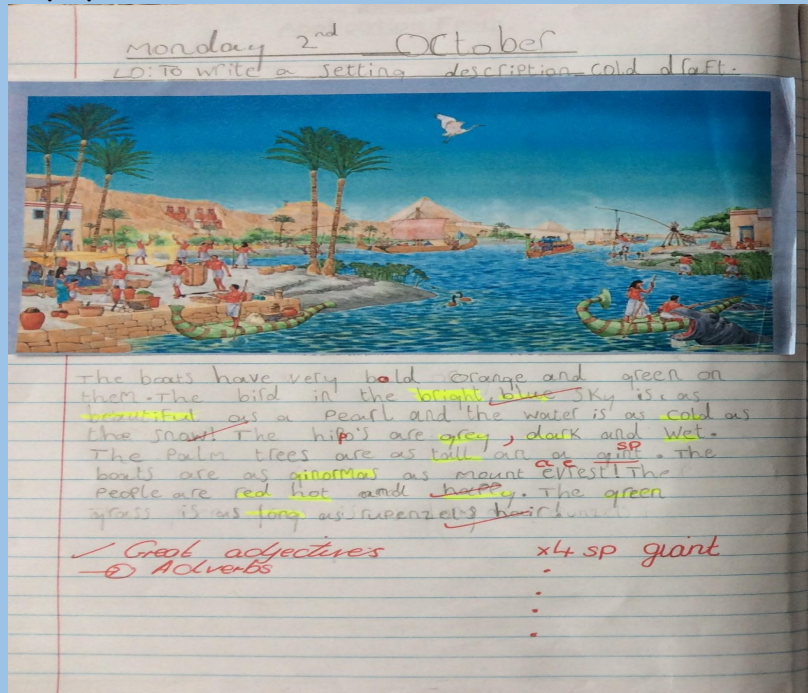 Monday 2nd October
LO: To write a setting description cold draft.
The boats have very bold orange and green on
them. The bird in the bright, blue sky is as
beautiful as a pearl and the water is as cold as
the snow! The hipo's are grey, dark and wet.
The palm trees are as tall an a gint. The
sp
boats are as ginormas as mount evrest! The
a e
people are red hot and happy. The green
grass is as long as rupenzel's hair
✓ Great adjectives
→ Adverbs
x4 sp giant